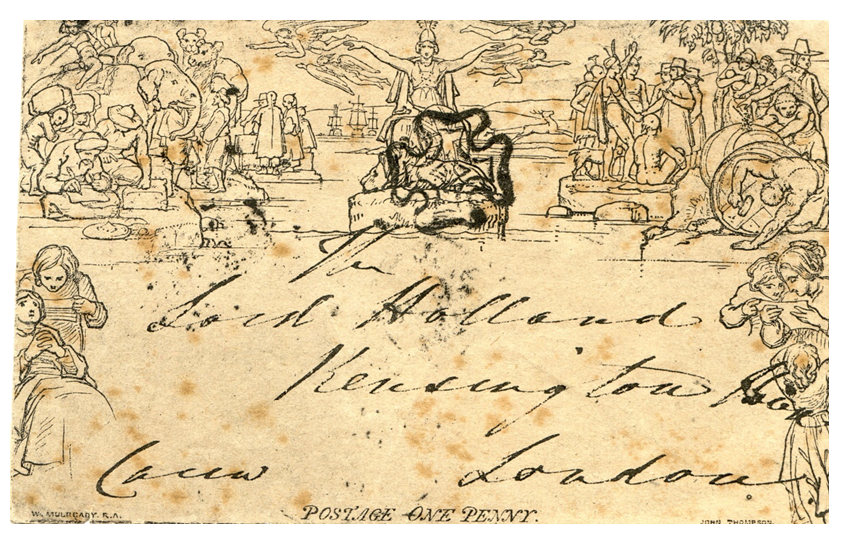 The
Lord Holland
Kensington
London
POSTAGE ONE PENNY.
W. MULREADY. R.A. JOHN THOMPSON